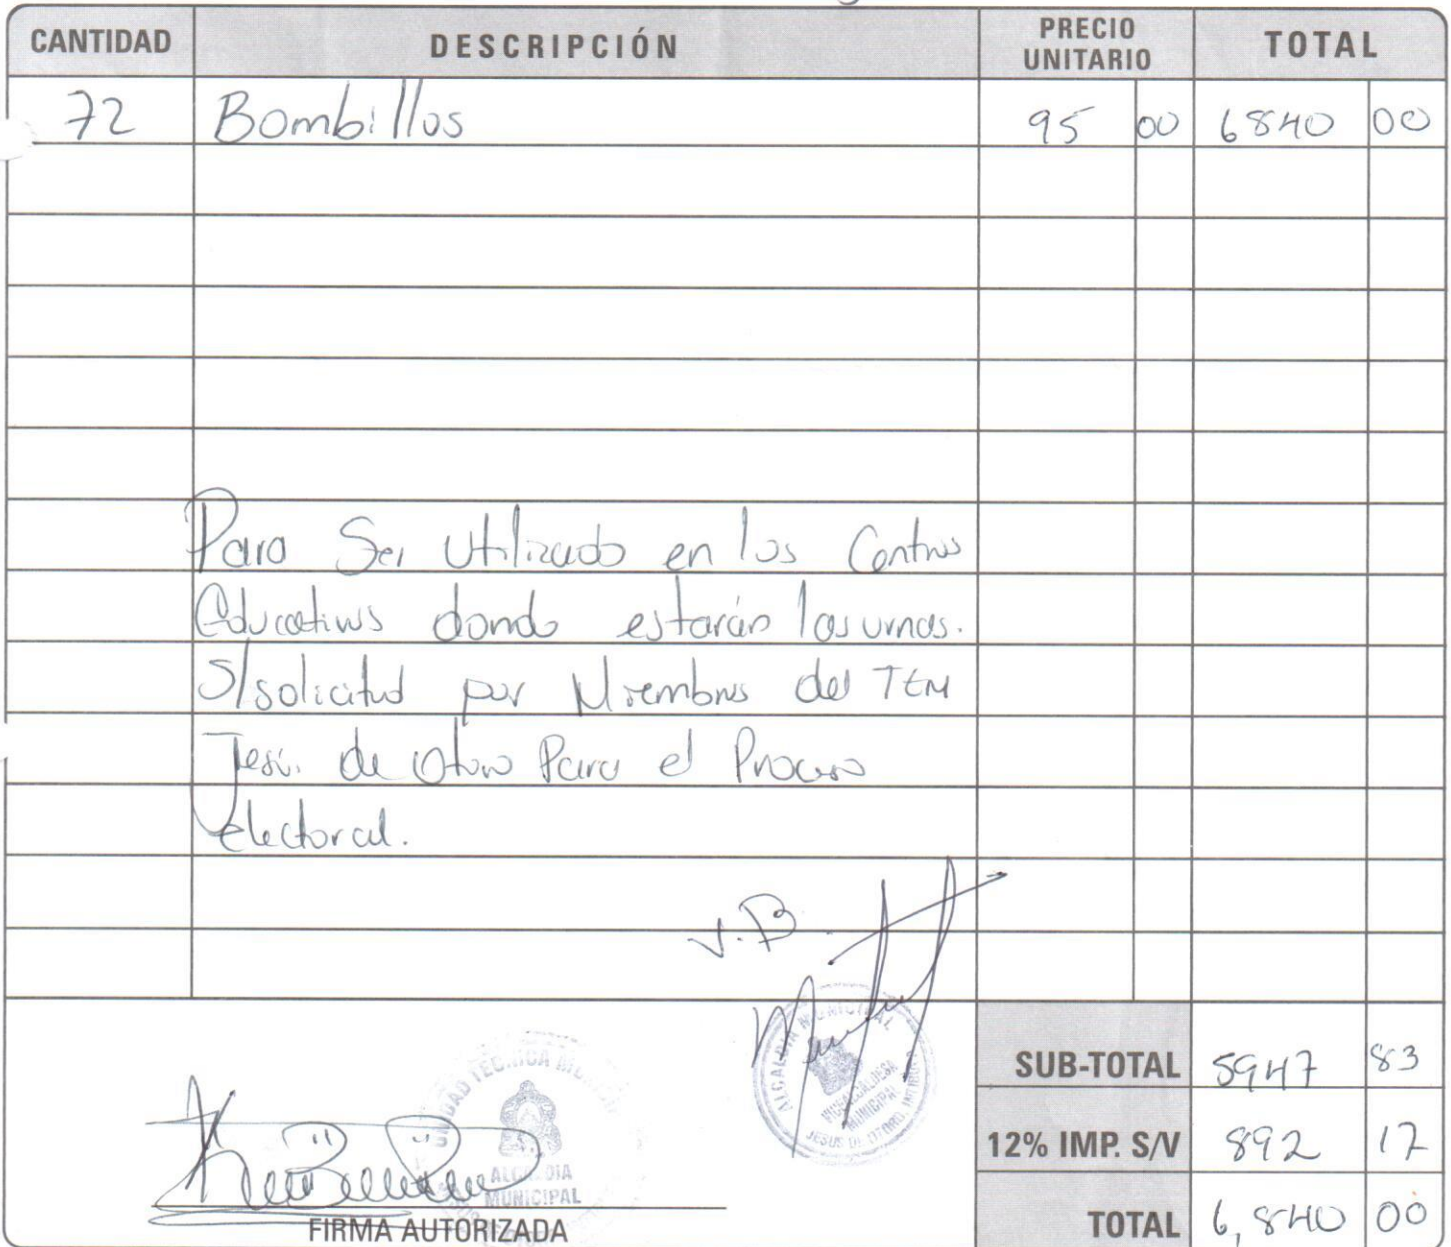 CANTIDAD DESCRIPCIÓN PRECIO UNITARIO TOTAL
72 Bombillos 95 00 6840 00
Para Ser Utilizado en los Centros
Educativos donde estarán las urnas.
S/solicitud por Miembros del TEM
Jesú. de Otoro Para el Proceso
Electoral.
V.B.
ALCALDIA MUNICIPAL
VICEALCALDESA
MUNICIPAL
JESUS DE OTORO, INTIBUCA
UNIDAD TECNICA MUNICIPAL
ALCALDIA
MUNICIPAL
SUB-TOTAL 5947 83
12% IMP. S/V 892 17
TOTAL 6,840 00
FIRMA AUTORIZADA